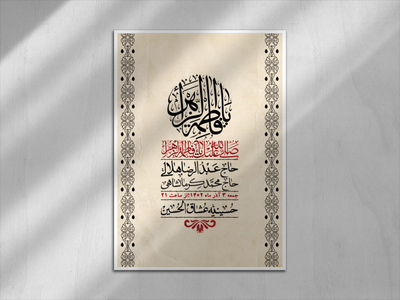 یا فاطمة الزهرا
صلی الله علیک یا فاطمة الزهرا
حاج عبدالرضا هلالی
حاج محمد کرمانشاهی
جمعه ۳ آذر ماه ۱۴۰۲ | از ساعت ۲۱
حسینیه عشاق الحسین